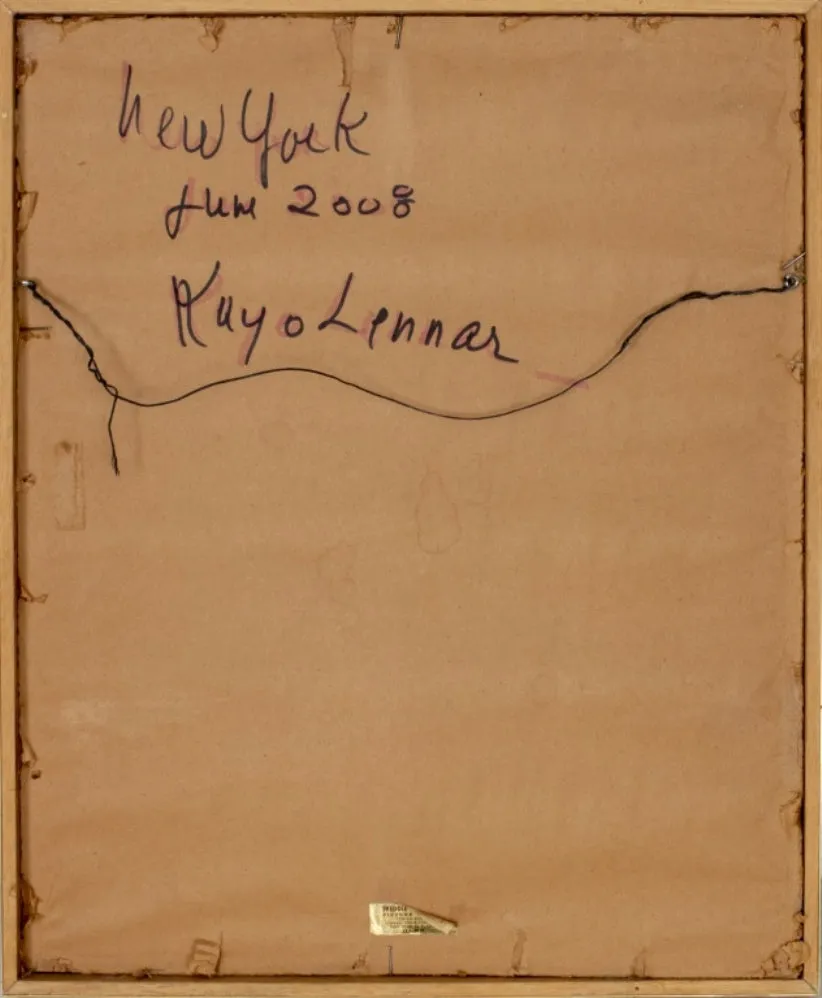 New York
June 2008
Kayo Lennar